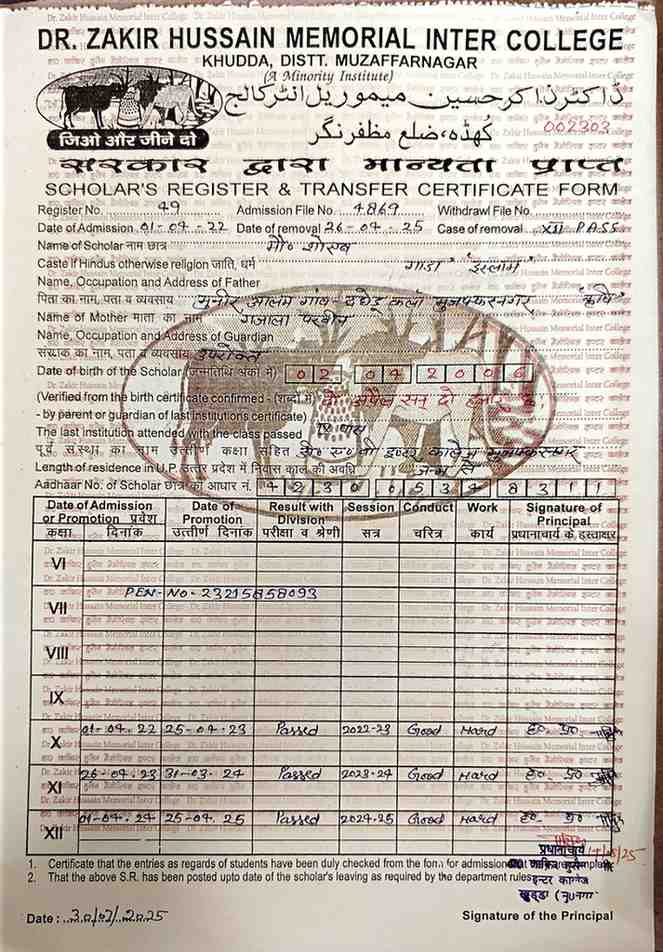 DR. ZAKIR HUSSAIN MEMORIAL INTER COLLEGE
KHUDDA, DISTT. MUZAFFARNAGAR
(A Minority Institute)
ڈاکٹر ذاکر حسین میموریل انٹر کالج
کھڈہ، ضلع مظفر نگر
002303
जिओ और जीने दो
सरकार द्वारा मान्यता प्राप्त
SCHOLAR'S REGISTER & TRANSFER CERTIFICATE FORM
Register No. 49 Admission File No. 4869 Withdrawl File No.
Date of Admission 01-04-22 Date of removal 26-04-25 Case of removal XII PASS
Name of Scholar नाम छात्र मौ०
Caste if Hindus otherwise religion जाति, धर्म गाडा "इस्लाम"
Name, Occupation and Address of Father
पिता का नाम, पता व व्यवसाय मुनीर आलम कृषि
Name of Mother माता का नाम गजाला परवीन
Name, Occupation and Address of Guardian
संरक्षक का नाम, पता व व्यवसाय उपरोक्त
Date of birth of the Scholar (जन्मतिथि अंकों में) 02 04 2006
(Verified from the birth certificate confirmed - (शब्दों में) दो अप्रैल सन् दो हजार छः
- by parent or guardian of last Institutions certificate)
The last institution attended with the class passed
पूर्व संस्था का नाम उत्तीर्ण कक्षा सहित
Length of residence in U.P. उत्तर प्रदेश में निवास काल की अवधि जन्म से
Aadhaar No. of Scholar छात्र का आधार नं. 4230 0534 8311
Date of Admission or Promotion प्रवेश Date of Promotion Result with Division Session Conduct Work Signature of Principal
कक्षा दिनांक उत्तीर्ण दिनांक परीक्षा व श्रेणी सत्र चरित्र कार्य प्रधानाचार्य के हस्ताक्षर
VI
PEN-NO-23215858093
VII
VIII
IX
X 01-04-22 25-04-23 Passed 2022-23 Good Hard ह० प्र०
XI 26-04-23 31-03-24 Passed 2023-24 Good Hard ह० प्र०
XII 01-04-24 25-04-25 Passed 2024-25 Good Hard ह० प्र०
1. Certificate that the entries as regards of students have been duly checked from the form for admission
2. That the above S.R. has been posted upto date of the scholar's leaving as required by the department rules.
प्रधानाचार्य
इन्टर कालेज
खुड्डा (मु०नगर
Date : 2025
Signature of the Principal